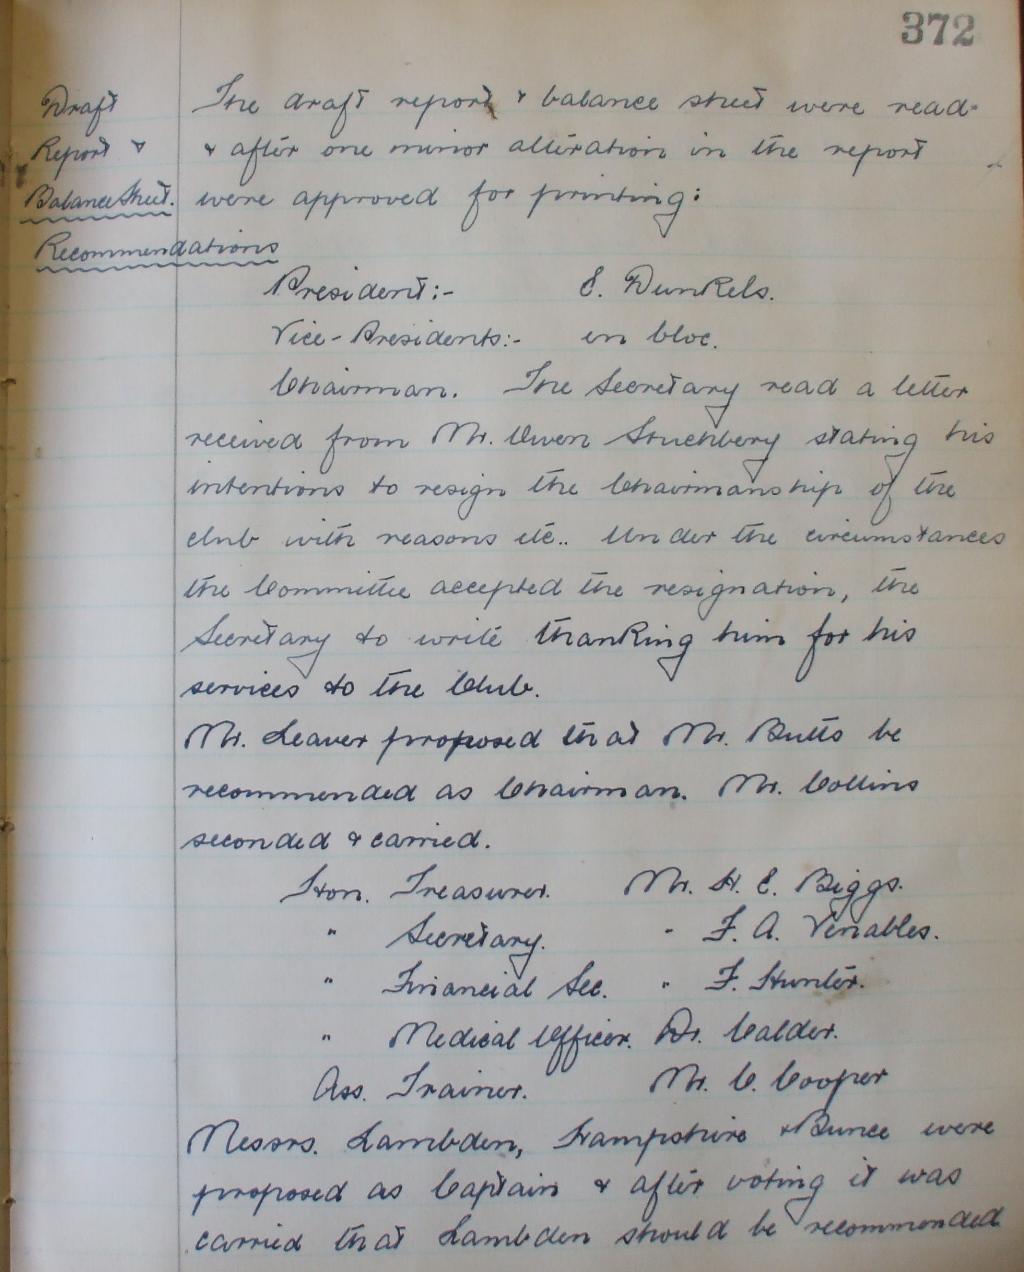 372
Draft
Report &
Balance Sheet.
The draft report & balance sheet were read
& after one minor alteration in the report
were approved for printing:
Recommendations
President:- E. Dunkels.
Vice-Presidents:- en bloc.
Chairman. The Secretary read a letter
received from Mr. Owen Stuchbery stating his
intentions to resign the Chairmanship of the
club with reasons etc.. Under the circumstances
the Committee accepted the resignation, the
Secretary to write thanking him for his
services to the Club.
Mr. Leaver proposed that Mr. Butts be
recommended as Chairman. Mr. Collins
seconded & carried.
Hon. Treasurer. Mr. H. E. Biggs.
" Secretary. " F. A. Venables.
" Financial Sec. " F. Hunter.
" Medical Officer. Dr. Calder.
Ass. Trainer. Mr. C. Cooper
Messrs. Lambden, Hampshire & Bunce were
proposed as Captain & after voting it was
carried that Lambden should be recommended